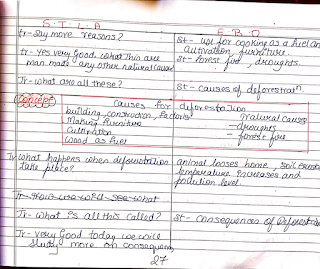 S.T.L.A
E.B.O
Tr- say more reasons?
st- use for cooking as a fuel an
cultivation, furniture.
Tr- yes very Good. What this are
man made any other natural cause
st- forest fire, droughts.
Tr- what are all these?
st- causes of deforestran.
Concept
causes for deforestation
building construction, factories
Making furniture
Cultivation
wood as fuel
natural causes
- droughts
- forest fire
Tr What happens when deforestation
take place?
animal losses home, soil
temperature increases and
pollution level.
Tr- what is all this called?
st- consequences of Deforest
Tr- very Good today we will
study more on consequenc
27